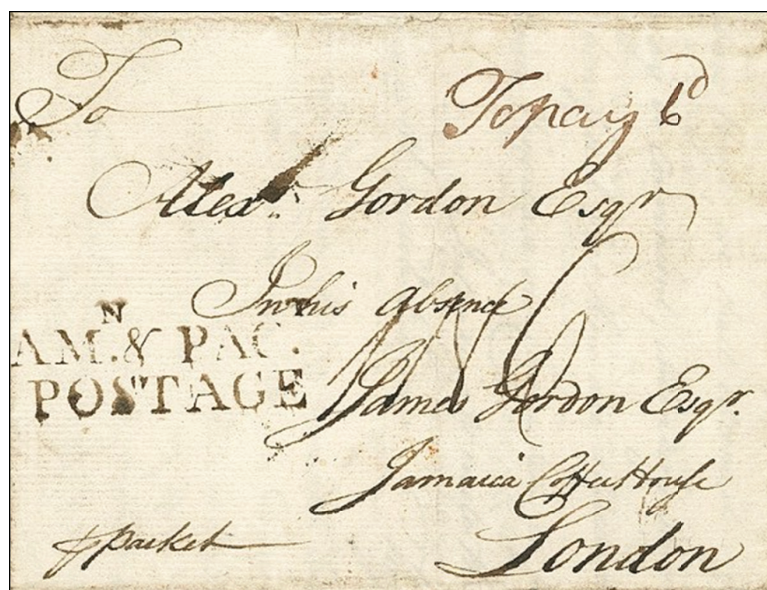 To
To pay 6d
Alexr. Gordon Esqr
In his absence
N
AM. & PAC.
POSTAGE
James Gordon Esqr.
Jamaica Coffee House
p packet
London